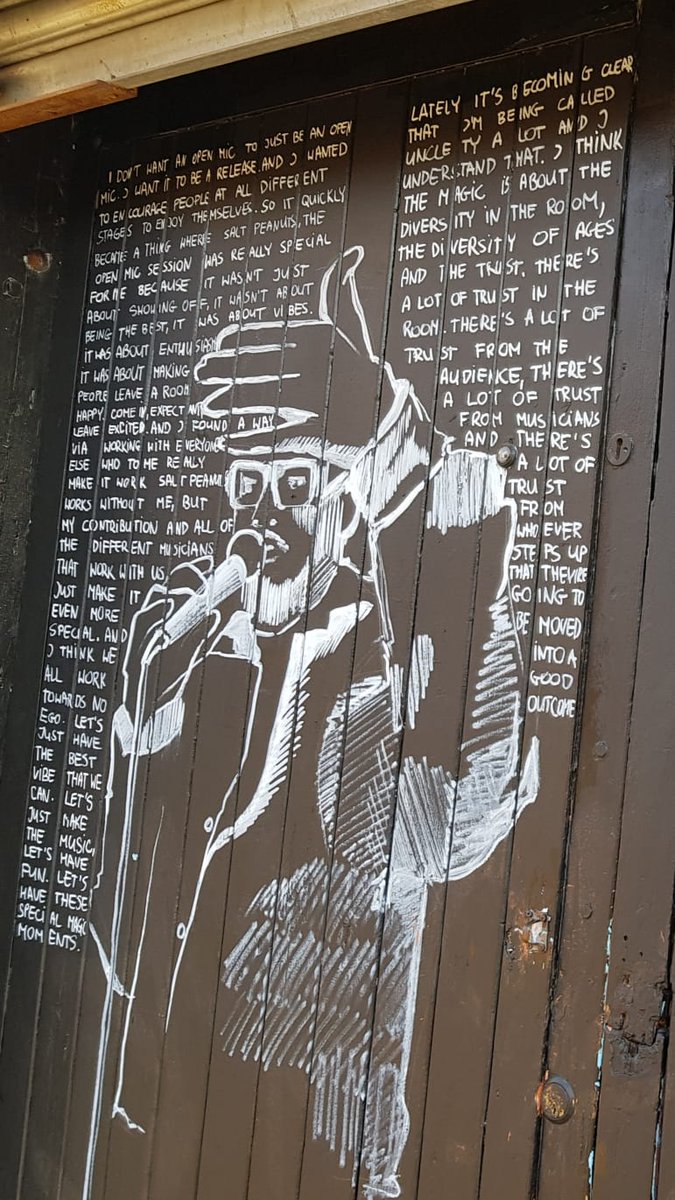 I DON'T WANT AN OPEN MIC TO JUST BE AN OPEN
MIC. I WANT IT TO BE A RELEASE. AND I WANTED
TO ENCOURAGE PEOPLE AT ALL DIFFERENT
STAGES TO ENJOY THEMSELVES. SO IT QUICKLY
BECAME A THING WHERE SALT PEANUTS, THE
OPEN MIC SESSION WAS REALLY SPECIAL
FOR ME BECAUSE IT WASN'T JUST
ABOUT SHOWING OFF, IT WASN'T ABOUT
BEING THE BEST, IT WAS ABOUT VIBES.
IT WAS ABOUT ENTHUSIASM
IT WAS ABOUT MAKING
PEOPLE LEAVE A ROOM
HAPPY. COME IN, EXPECT
LEAVE EXCITED. AND I FOUND A WAY
VIA WORKING WITH EVERYONE
ELSE WHO TO ME REALLY
MAKE IT WORK SALT PEANU
WORKS WITHOUT ME, BUT
MY CONTRIBUTION AND ALL OF
THE DIFFERENT MUSICIANS
THAT WORK WITH US
JUST MAKE IT
EVEN MORE
SPECIAL. AND
I THINK WE
ALL WORK
TOWARDS NO
EGO. LET'S
JUST HAVE
THE BEST
VIBE THAT WE
CAN. LET'S
JUST MAKE
THE MUSIC,
LET'S HAVE
FUN. LET'S
HAVE THESE
SPECIAL MAGIC
MOMENTS.
LATELY IT'S BECOMING CLEAR
THAT I'M BEING CALLED
UNCLE TY A LOT AND I
UNDERSTAND THAT. I THINK
THE MAGIC IS ABOUT THE
DIVERSITY IN THE ROOM,
THE DIVERSITY OF AGES
AND THE TRUST. THERE'S
A LOT OF TRUST IN THE
ROOM. THERE'S A LOT OF
TRUST FROM THE
AUDIENCE, THERE'S
A LOT OF TRUST
FROM MUSICIANS
AND THERE'S
A LOT OF
TRUST
FROM
WHOEVER
STEPS UP
THAT THE VIBE
GOING TO
BE MOVED
INTO A
GOOD
OUTCOME